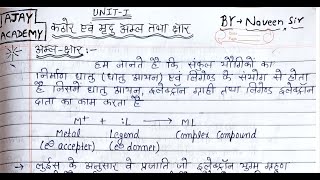 AJAY
ACADEMY
UNIT-I
कठोर एवं मृदु अम्ल तथा क्षार
BY→ Naveen Sir
अम्ल-क्षार :-
हम जानते है कि संकुल यौगिकों का
निर्माण धातु (धातु आयन) एवं लिगेण्ड के संयोग से होता
है, जिसमें धातु आयन, इलेक्ट्रॉन ग्राही तथा लिगेण्ड इलेक्ट्रॉन
दाता का काम करता है
M⁺ + :L → ML
Metal Legend Complex Compound
(e⊖ accepter) (e⊖ donner)
→ लुईस के अनुसार वे प्रजाति जो इलेक्ट्रॉन युग्म ग्रहण